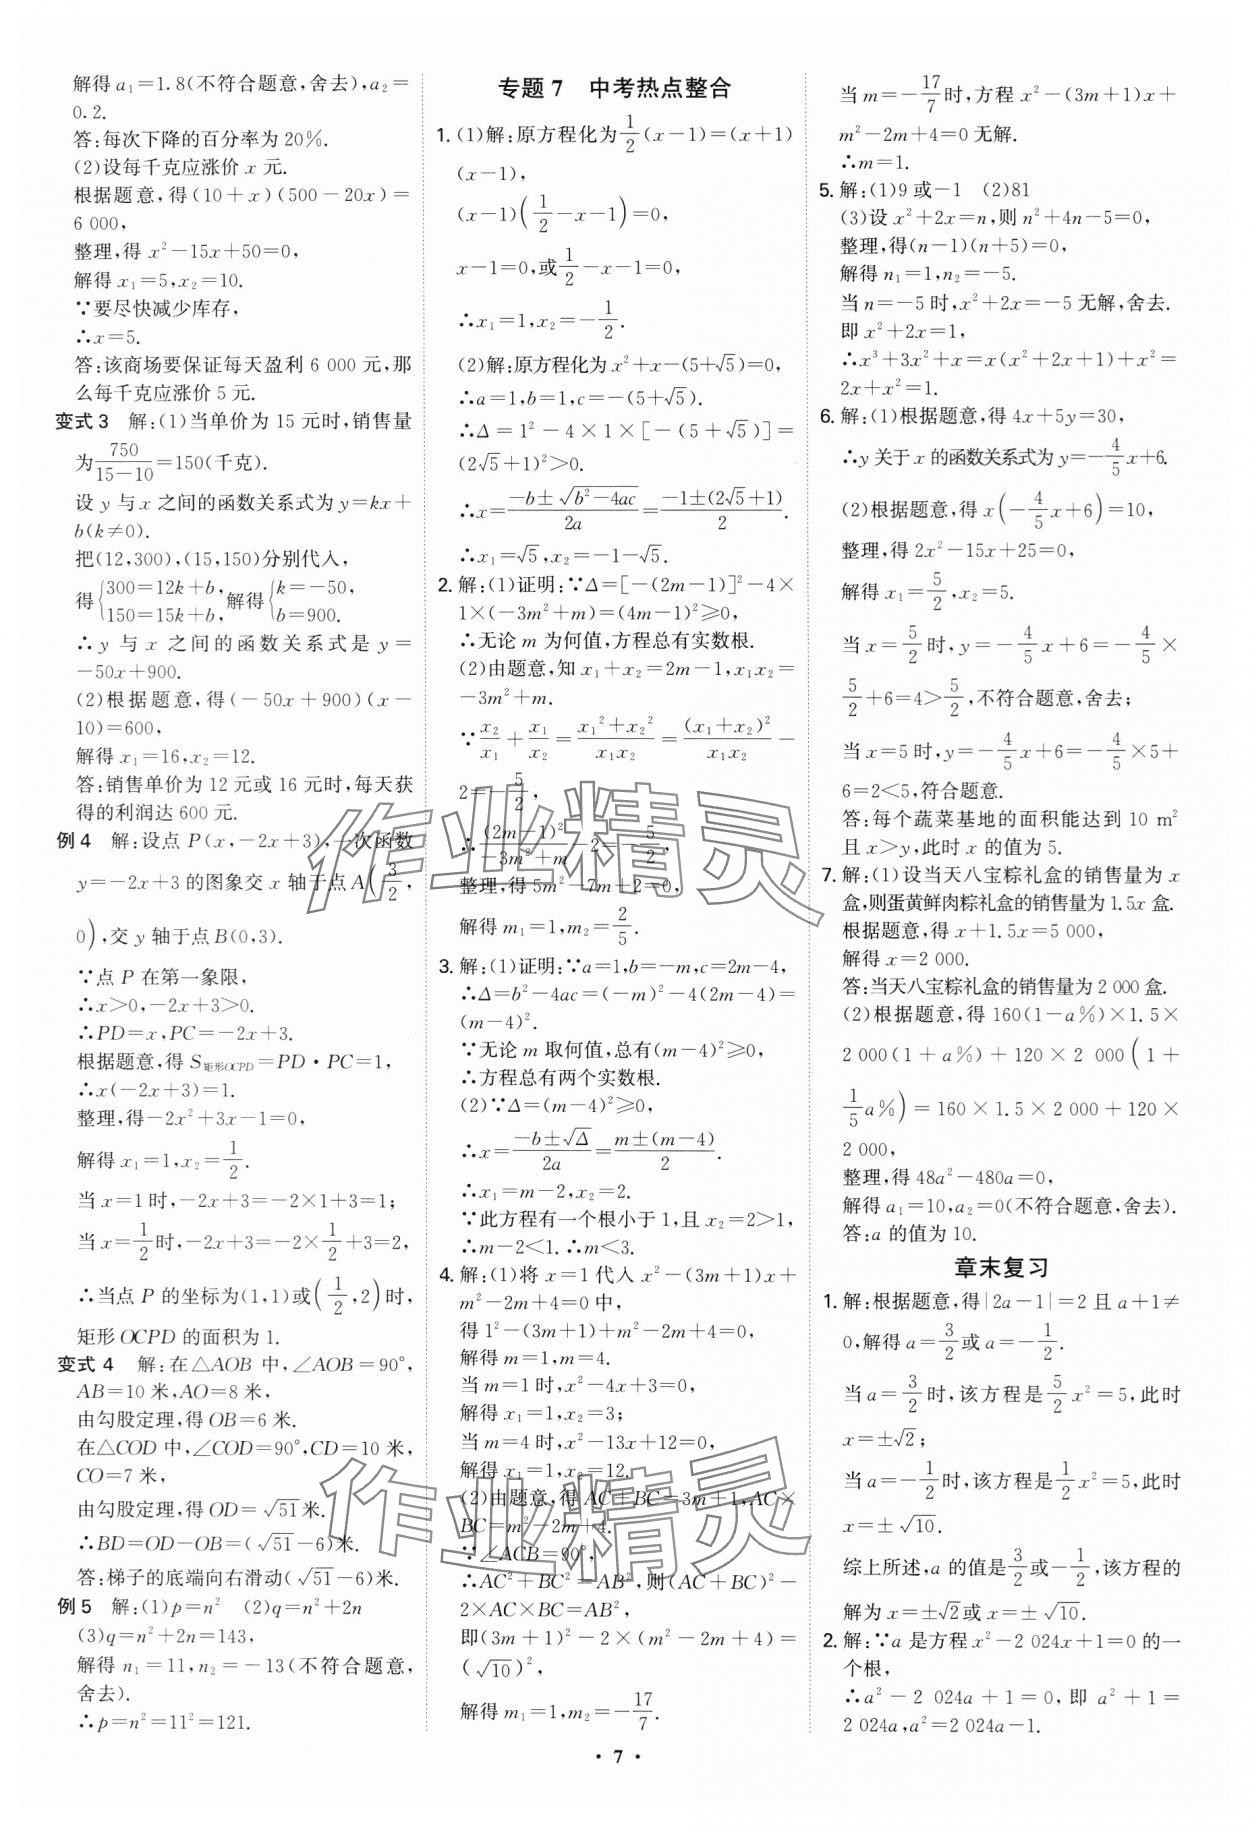 解得 a₁=1.8(不符合题意,舍去),a₂=
0.2.
答:每次下降的百分率为 20%.
(2)设每千克应涨价 x 元.
根据题意,得(10+x)(500-20x)=
6 000,
整理,得 x²-15x+50=0,
解得 x₁=5,x₂=10.
∵要尽快减少库存,
∴x=5.
答:该商场要保证每天盈利 6 000 元,那
么每千克应涨价 5 元.
变式 3 解:(1)当单价为 15 元时,销售量
为750/(15-10)=150(千克).
设 y 与 x 之间的函数关系式为 y=kx+
b(k≠0).
把(12,300),(15,150)分别代入,
得{300=12k+b, 150=15k+b, 解得{k=-50, b=900.
∴y 与 x 之间的函数关系式是 y=
-50x+900.
(2)根据题意,得(-50x+900)(x-
10)=600,
解得 x₁=16,x₂=12.
答:销售单价为 12 元或 16 元时,每天获
得的利润达 600 元.
例 4 解:设点 P(x,-2x+3),一次函数
y=-2x+3 的图象交 x 轴于点 A(3/2,
0),交 y 轴于点 B(0,3).
∵点 P 在第一象限,
∴x>0,-2x+3>0.
∴PD=x,PC=-2x+3.
根据题意,得 S矩形OCPD=PD·PC=1,
∴x(-2x+3)=1.
整理,得-2x²+3x-1=0,
解得 x₁=1,x₂=1/2.
当 x=1 时,-2x+3=-2×1+3=1;
当 x=1/2时,-2x+3=-2×1/2+3=2,
∴当点 P 的坐标为(1,1)或(1/2,2)时,
矩形 OCPD 的面积为 1.
变式 4 解:在△AOB 中,∠AOB=90°,
AB=10 米,AO=8 米,
由勾股定理,得 OB=6 米.
在△COD 中,∠COD=90°,CD=10 米,
CO=7 米,
由勾股定理,得 OD=√51米.
∴BD=OD-OB=(√51-6)米.
答:梯子的底端向右滑动(√51-6)米.
例 5 解:(1)p=n² (2)q=n²+2n
(3)q=n²+2n=143,
解得 n₁=11,n₂=-13(不符合题意,
舍去).
∴p=n²=11²=121.
专题 7 中考热点整合
1. (1)解:原方程化为1/2(x-1)=(x+1)
(x-1),
(x-1)(1/2-x-1)=0,
x-1=0,或1/2-x-1=0,
∴x₁=1,x₂=-1/2.
(2)解:原方程化为 x²+x-(5+√5)=0,
∴a=1,b=1,c=-(5+√5).
∴Δ=1²-4×1×[-(5+√5)]=
(2√5+1)²>0.
∴x=(-b±√(b²-4ac))/2a=(-1±(2√5+1))/2.
∴x₁=√5,x₂=-1-√5.
2. 解:(1)证明:∵Δ=[-(2m-1)]²-4×
1×(-3m²+m)=(4m-1)²≥0,
∴无论 m 为何值,方程总有实数根.
(2)由题意,知 x₁+x₂=2m-1,x₁x₂=
-3m²+m.
∵x₂/x₁+x₁/x₂=(x₁²+x₂²)/x₁x₂=(x₁+x₂)²/x₁x₂-
2=-5/2,
∴(2m-1)²/(-3m²+m)-2=-5/2,
整理,得 5m²-7m+2=0,
解得 m₁=1,m₂=2/5.
3. 解:(1)证明:∵a=1,b=-m,c=2m-4,
∴Δ=b²-4ac=(-m)²-4(2m-4)=
(m-4)².
∵无论 m 取何值,总有(m-4)²≥0,
∴方程总有两个实数根.
(2)∵Δ=(m-4)²≥0,
∴x=(-b±√Δ)/2a=(m±(m-4))/2.
∴x₁=m-2,x₂=2.
∵此方程有一个根小于 1,且 x₂=2>1,
∴m-2<1.∴m<3.
4. 解:(1)将 x=1 代入 x²-(3m+1)x+
m²-2m+4=0 中,
得 1²-(3m+1)+m²-2m+4=0,
解得 m=1,m=4.
当 m=1 时,x²-4x+3=0,
解得 x₁=1,x₂=3;
当 m=4 时,x²-13x+12=0,
解得 x₁=1,x₂=12.
(2)由题意,得 AC+BC=3m+1,AC×
BC=m²-2m+4.
∵∠ACB=90°,
∴AC²+BC²=AB²,则(AC+BC)²-
2×AC×BC=AB²,
即(3m+1)²-2×(m²-2m+4)=
(√10)²,
解得 m₁=1,m₂=-17/7.
当 m=-17/7时,方程 x²-(3m+1)x+
m²-2m+4=0 无解.
∴m=1.
5. 解:(1)9 或-1 (2)81
(3)设 x²+2x=n,则 n²+4n-5=0,
整理,得(n-1)(n+5)=0,
解得 n₁=1,n₂=-5.
当 n=-5 时,x²+2x=-5 无解,舍去.
即 x²+2x=1,
∴x³+3x²+x=x(x²+2x+1)+x²=
2x+x²=1.
6. 解:(1)根据题意,得 4x+5y=30,
∴y 关于 x 的函数关系式为 y=-4/5x+6.
(2)根据题意,得 x(-4/5x+6)=10,
整理,得 2x²-15x+25=0,
解得 x₁=5/2,x₂=5.
当 x=5/2时,y=-4/5x+6=-4/5×
5/2+6=4>5/2,不符合题意,舍去;
当 x=5 时,y=-4/5x+6=-4/5×5+
6=2<5,符合题意.
答:每个蔬菜基地的面积能达到 10 m²
且 x>y,此时 x 的值为 5.
7. 解:(1)设当天八宝粽礼盒的销售量为 x
盒,则蛋黄鲜肉粽礼盒的销售量为 1.5x 盒.
根据题意,得 x+1.5x=5 000,
解得 x=2 000.
答:当天八宝粽礼盒的销售量为 2 000 盒.
(2)根据题意,得 160(1-a%)×1.5×
2 000(1+a%)+120×2 000(1+
1/5a%)=160×1.5×2 000+120×
2 000,
整理,得 48a²-480a=0,
解得 a₁=10,a₂=0(不符合题意,舍去).
答:a 的值为 10.
章末复习
1. 解:根据题意,得|2a-1|=2 且 a+1≠
0,解得 a=3/2或 a=-1/2.
当 a=3/2时,该方程是5/2x²=5,此时
x=±√2;
当 a=-1/2时,该方程是1/2x²=5,此时
x=±√10.
综上所述,a 的值是3/2或-1/2,该方程的
解为 x=±√2或 x=±√10.
2. 解:∵a 是方程 x²-2 024x+1=0 的一
个根,
∴a²-2 024a+1=0,即 a²+1=
2 024a,a²=2 024a-1.
· 7 ·
作业精灵
作业精灵